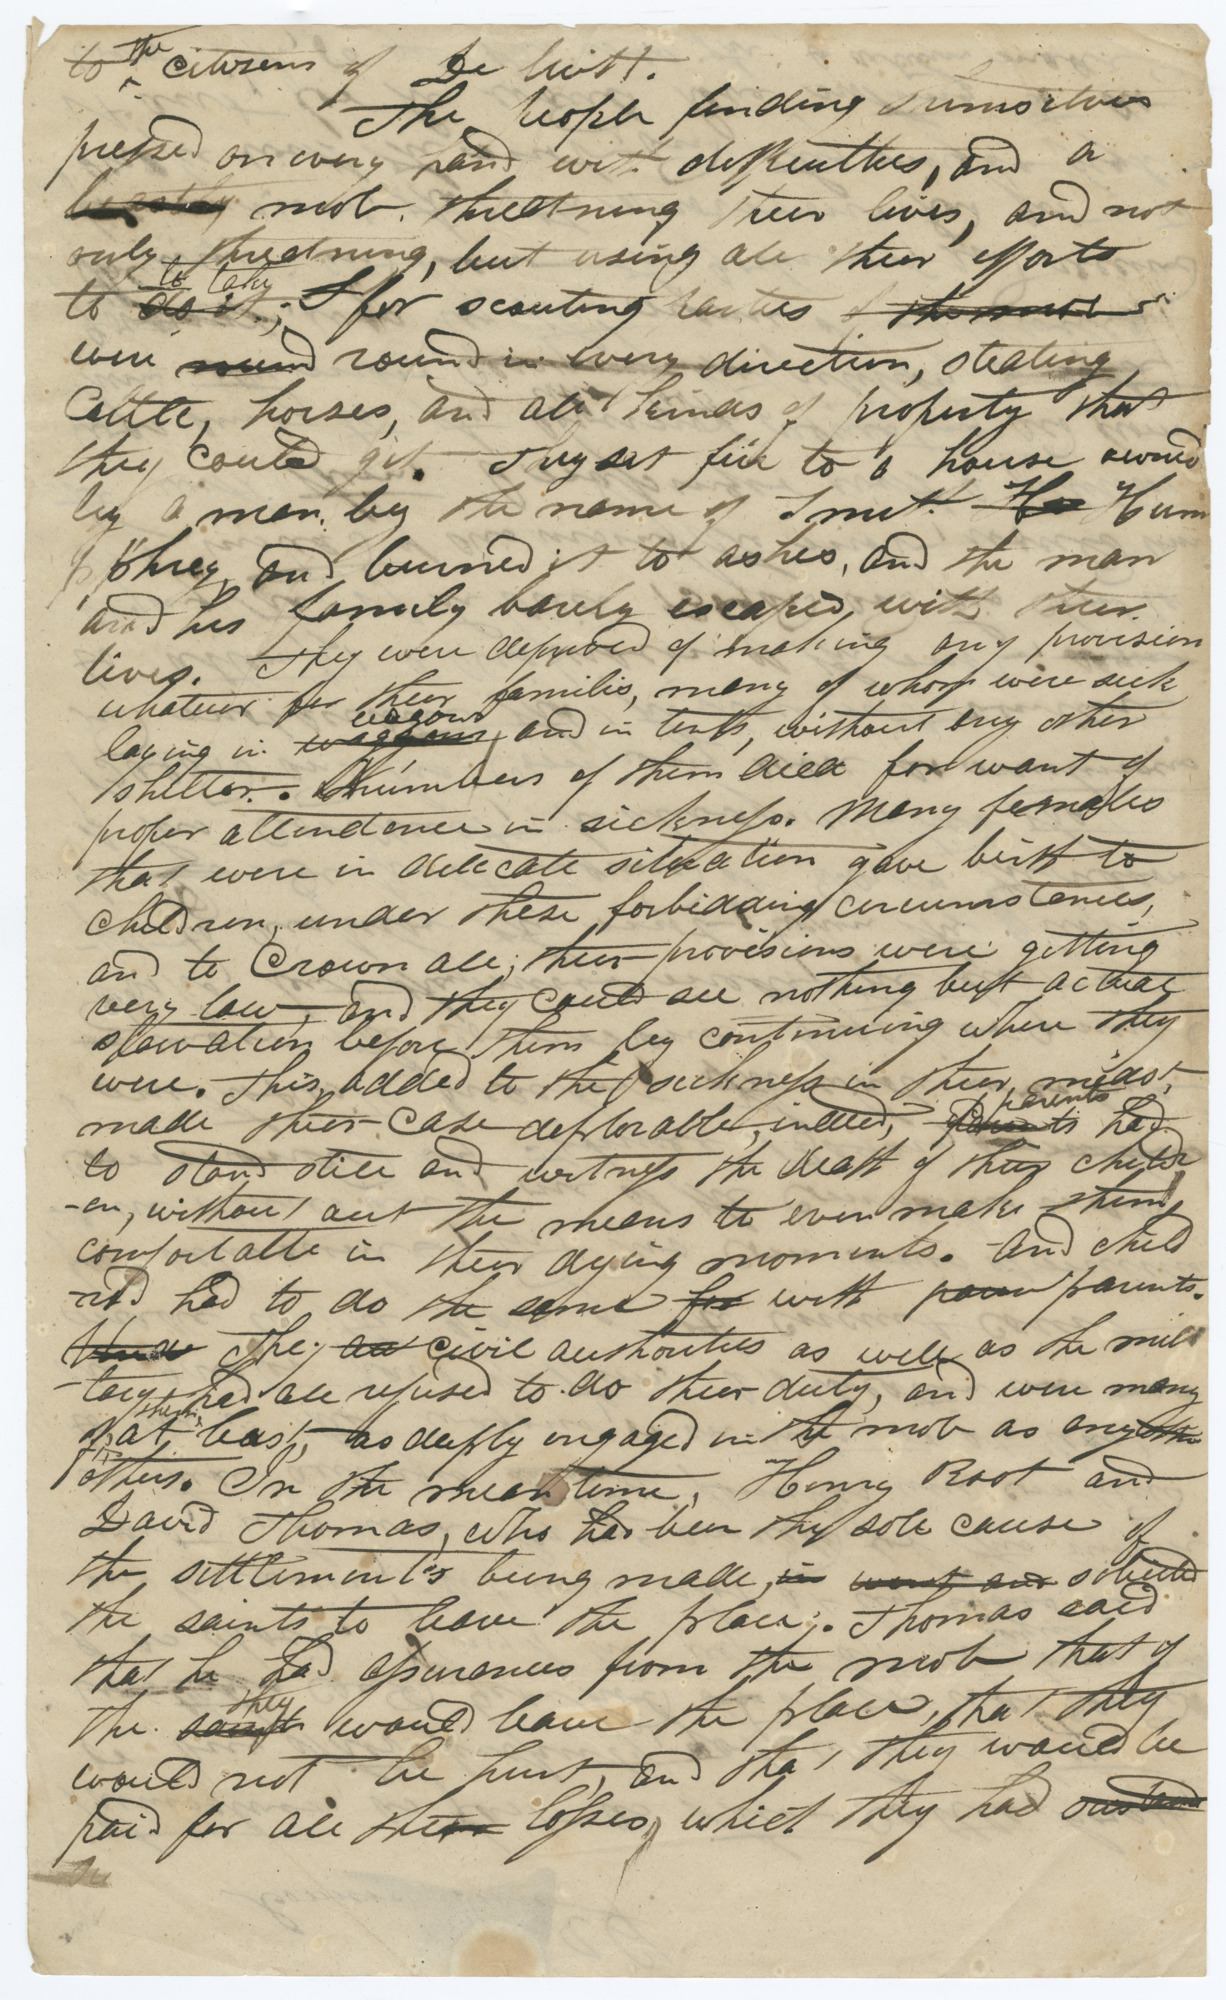 to the citizens of De Witt.
The people finding themselves
pressed on every hand with difficulties, and a
beastley mob. threatning their lives, and not
only threatning, but using all their efforts
to do it. to take; I for scouting parties of the mob
were round round in every direction, stealing
Cattle, horses, and all kinds of property that
they could get. They set fire to a house owned
by a man by the name of Smith Ha Hum
phrey, and burned it to ashes, and the man
and his family barely escaped, with their
lives. They were deprived of making any provision
whatever for their families, many of whom were sick
laying in waggons wagons, and in tents, without any other
shelter. Numbers of them died for want of
proper attendence in sickness. Many females
that were in delecate situation gave birth to
children, under these forbidding circumstances,
and to Crown all, their provisions were getting
very low, and they could see nothing but actual
starvation before them by continuing where they
were. This, added to the sickness in their midst,
made their case deplorable, indeed, Parents parents had
to stand still and witness the death of their childr
-en, without aut the means to even make them
comfortable in their dying moments. And child
-red had to do the same for with parents.
The civil authorities as well as the mili
-tary had all refused to do their duty, and were many
of them, at least, as deeply engaged in the mob as any
others. In the mean time, Henry Root and
David Thomas, who had been the sole cause of
the settlement's being made, in went and solicited
the saints to leave the place. Thomas said
that he had assurances from the mob that if
the saints they would leave the place, that they
would not be hurt, and that they would be
paid for all their losses, which they had sustained